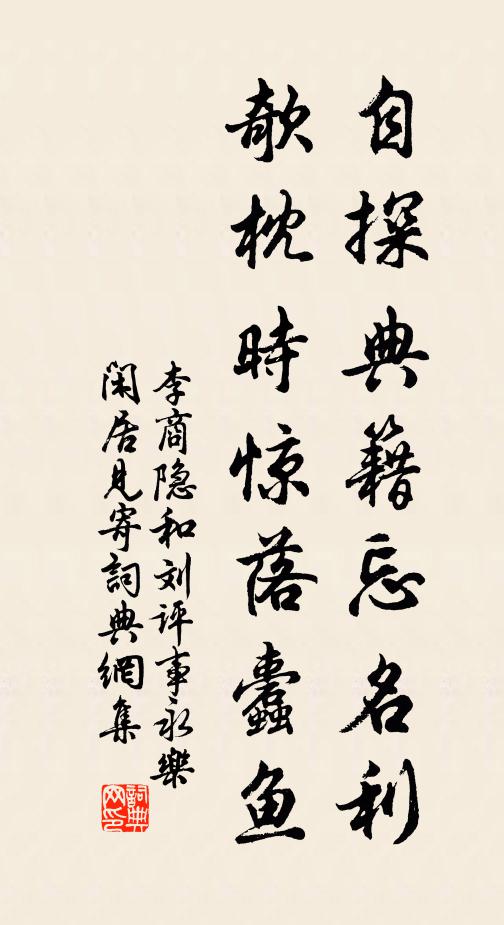 自探典籍忘名利
欹枕時惊落蠹鱼
李商隐和刘评事永樂
閑居見寄詞典網集
詞典网印